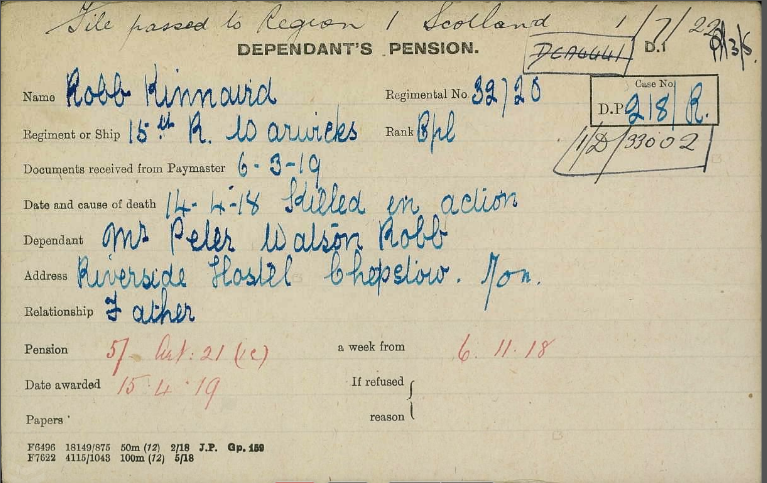 File passed to Region 1 Scotland 1/7/22
DEPENDANT'S PENSION. D.1
Name Robb Kinnaird Regimental No. 32120 Case No.
D.P. 218/R.
Regiment or Ship 15th R. Warwicks Rank Cpl
11/D/33002
Documents received from Paymaster 6-3-19
Date and cause of death 14-4-18 Killed in action
Dependant Mr Peter Watson Robb
Address Riverside Hostel Chepstow. Mon.
Relationship Father
Pension 5/- Art: 21 (1c) a week from 6.11.18
Date awarded 15.4.19 If refused
Papers reason
F6496 18149/875 50m (12) 2/18 J.P. Gp. 159
F7622 4115/1043 100m (12) 5/18